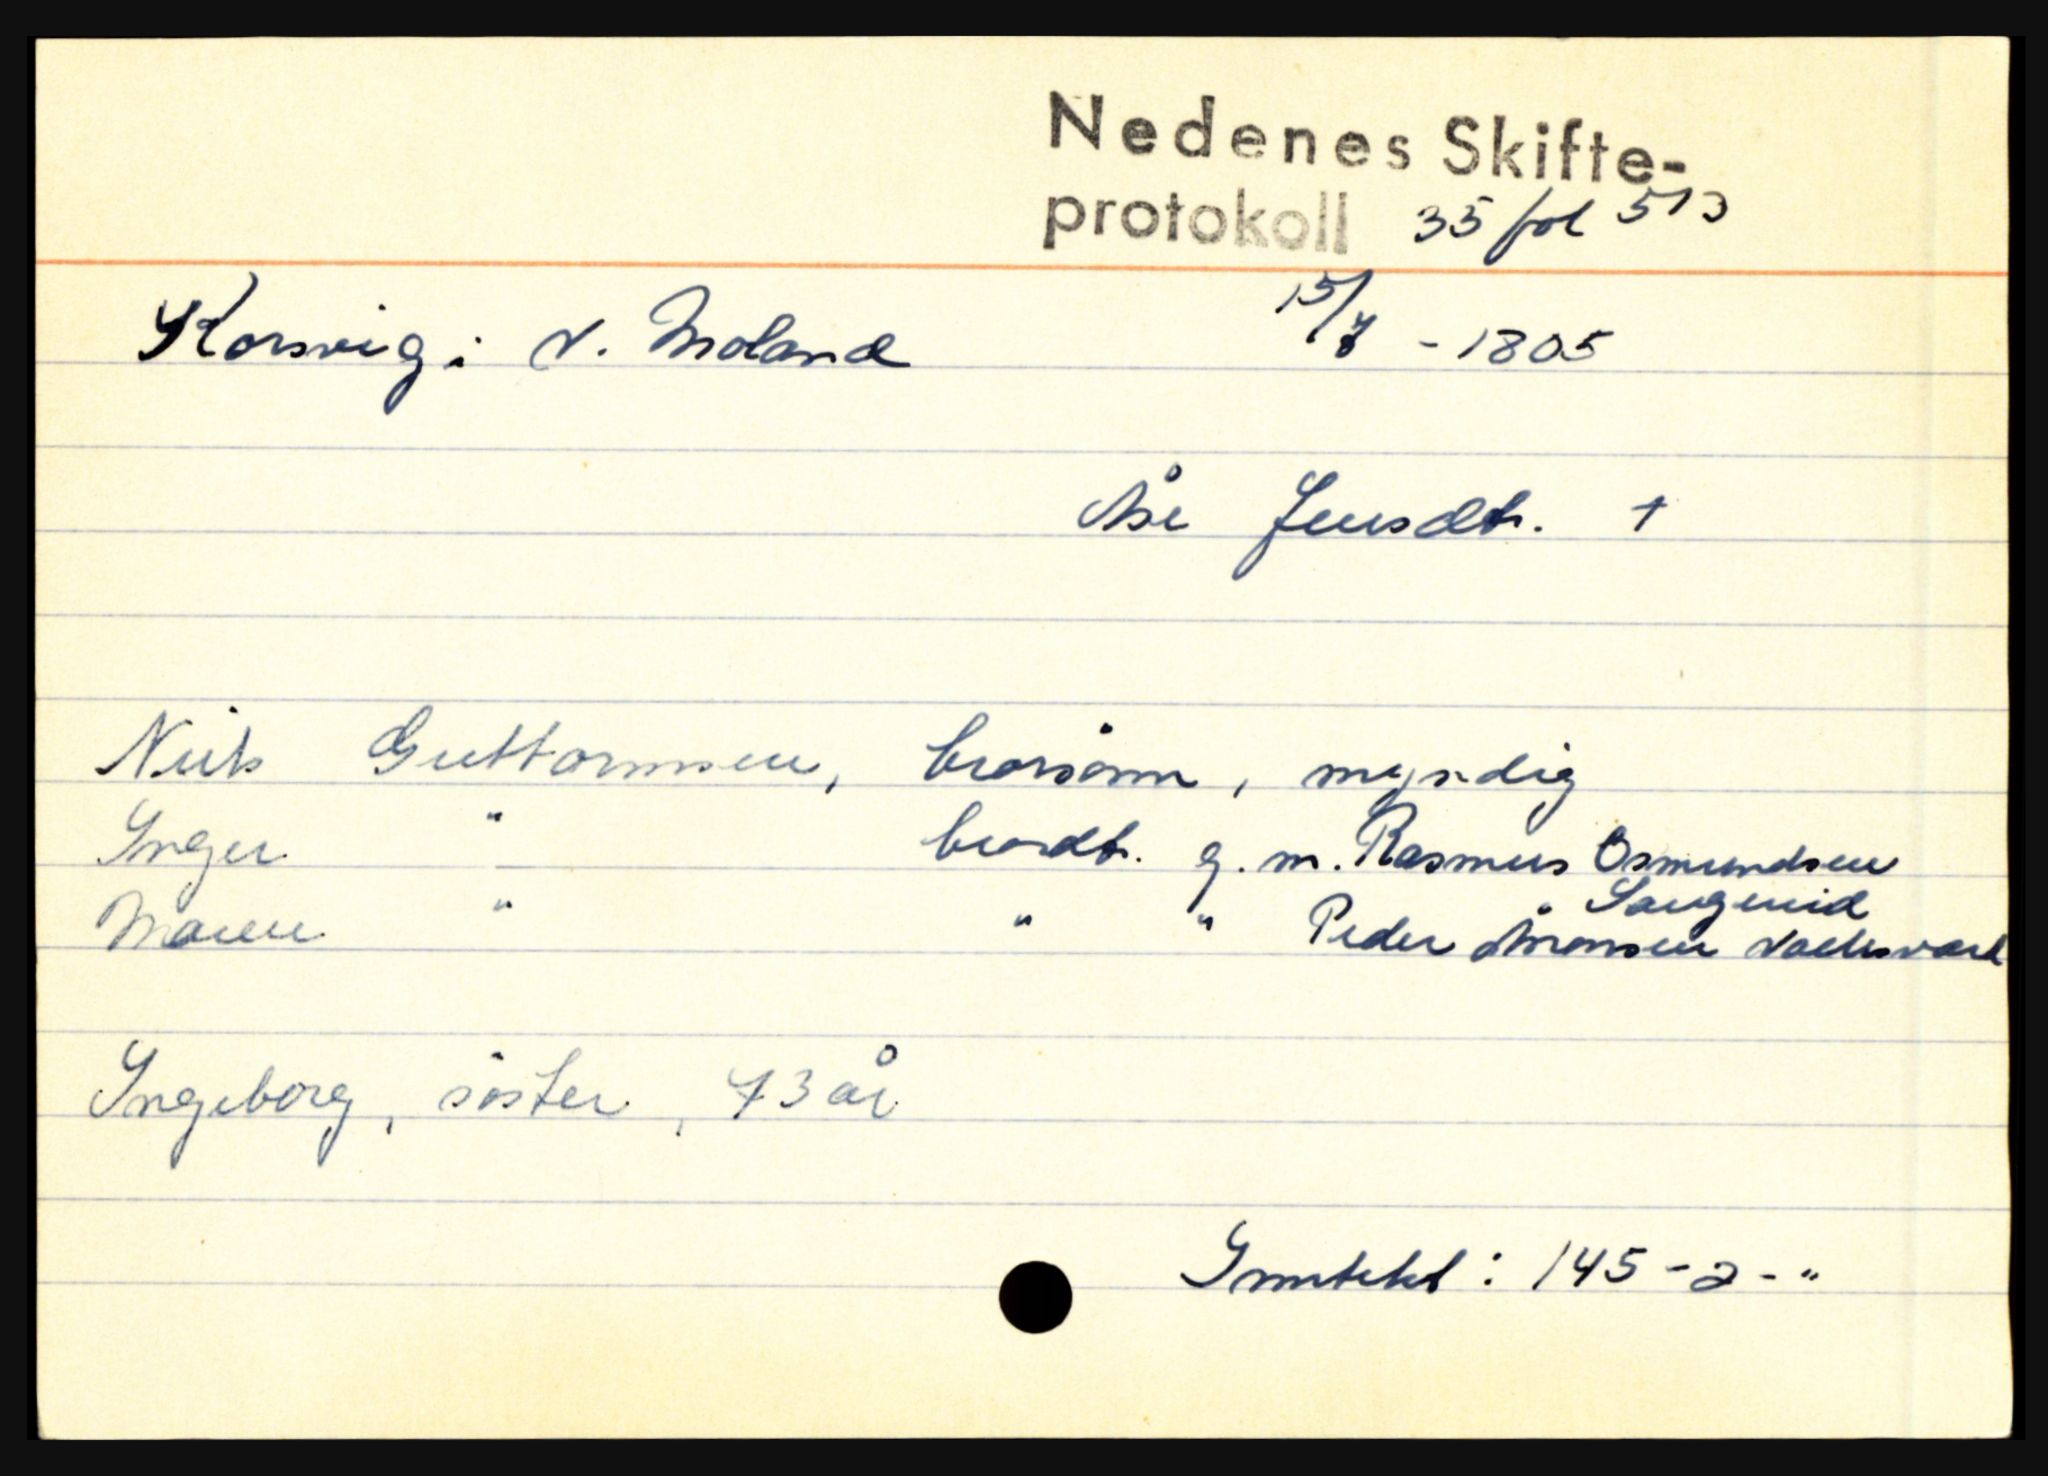 Nedenes Skifte-
protokoll 35 fol 513
Korsvig i V. Moland 15/7 - 1805
Åse Jensdtr. †
Niels Guttormsen, brorsönn, myndig
Inger " brordtr. g. m. Rasmus Osmundsen
Saugereid
Maren " " " Peder Aronsen
Ingeborg, söster, 73 år
Inntekt: 145 - 2 - "